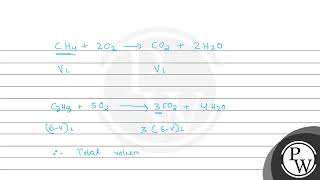 CH4 + 2O2 ⟶ CO2 + 2H2O
VL VL
C3H8 + 5O2 ⟶ 3CO2 + 4H2O
(6-V)L 3(6-V)L
∴ Total volum
PW
PW